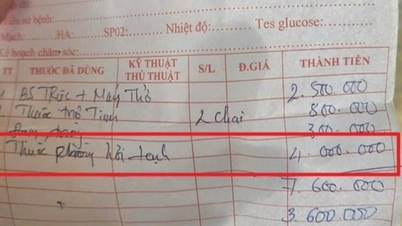 Chẩn đoán bệnh:
Mạch: HA: SP02: Nhiệt độ: Tes glucose:
Kế hoạch chăm sóc:
TT THUỐC ĐÃ DÙNG KỸ THUẬT THỦ THUẬT S/L Đ.GIÁ THÀNH TIỀN
BS Trực + Máy Thở 2.500.000
Thuốc trợ Tim 2 chai 800.000
300.000
Thuốc phòng hồi 4.000.000
7.600.000
3.600.000